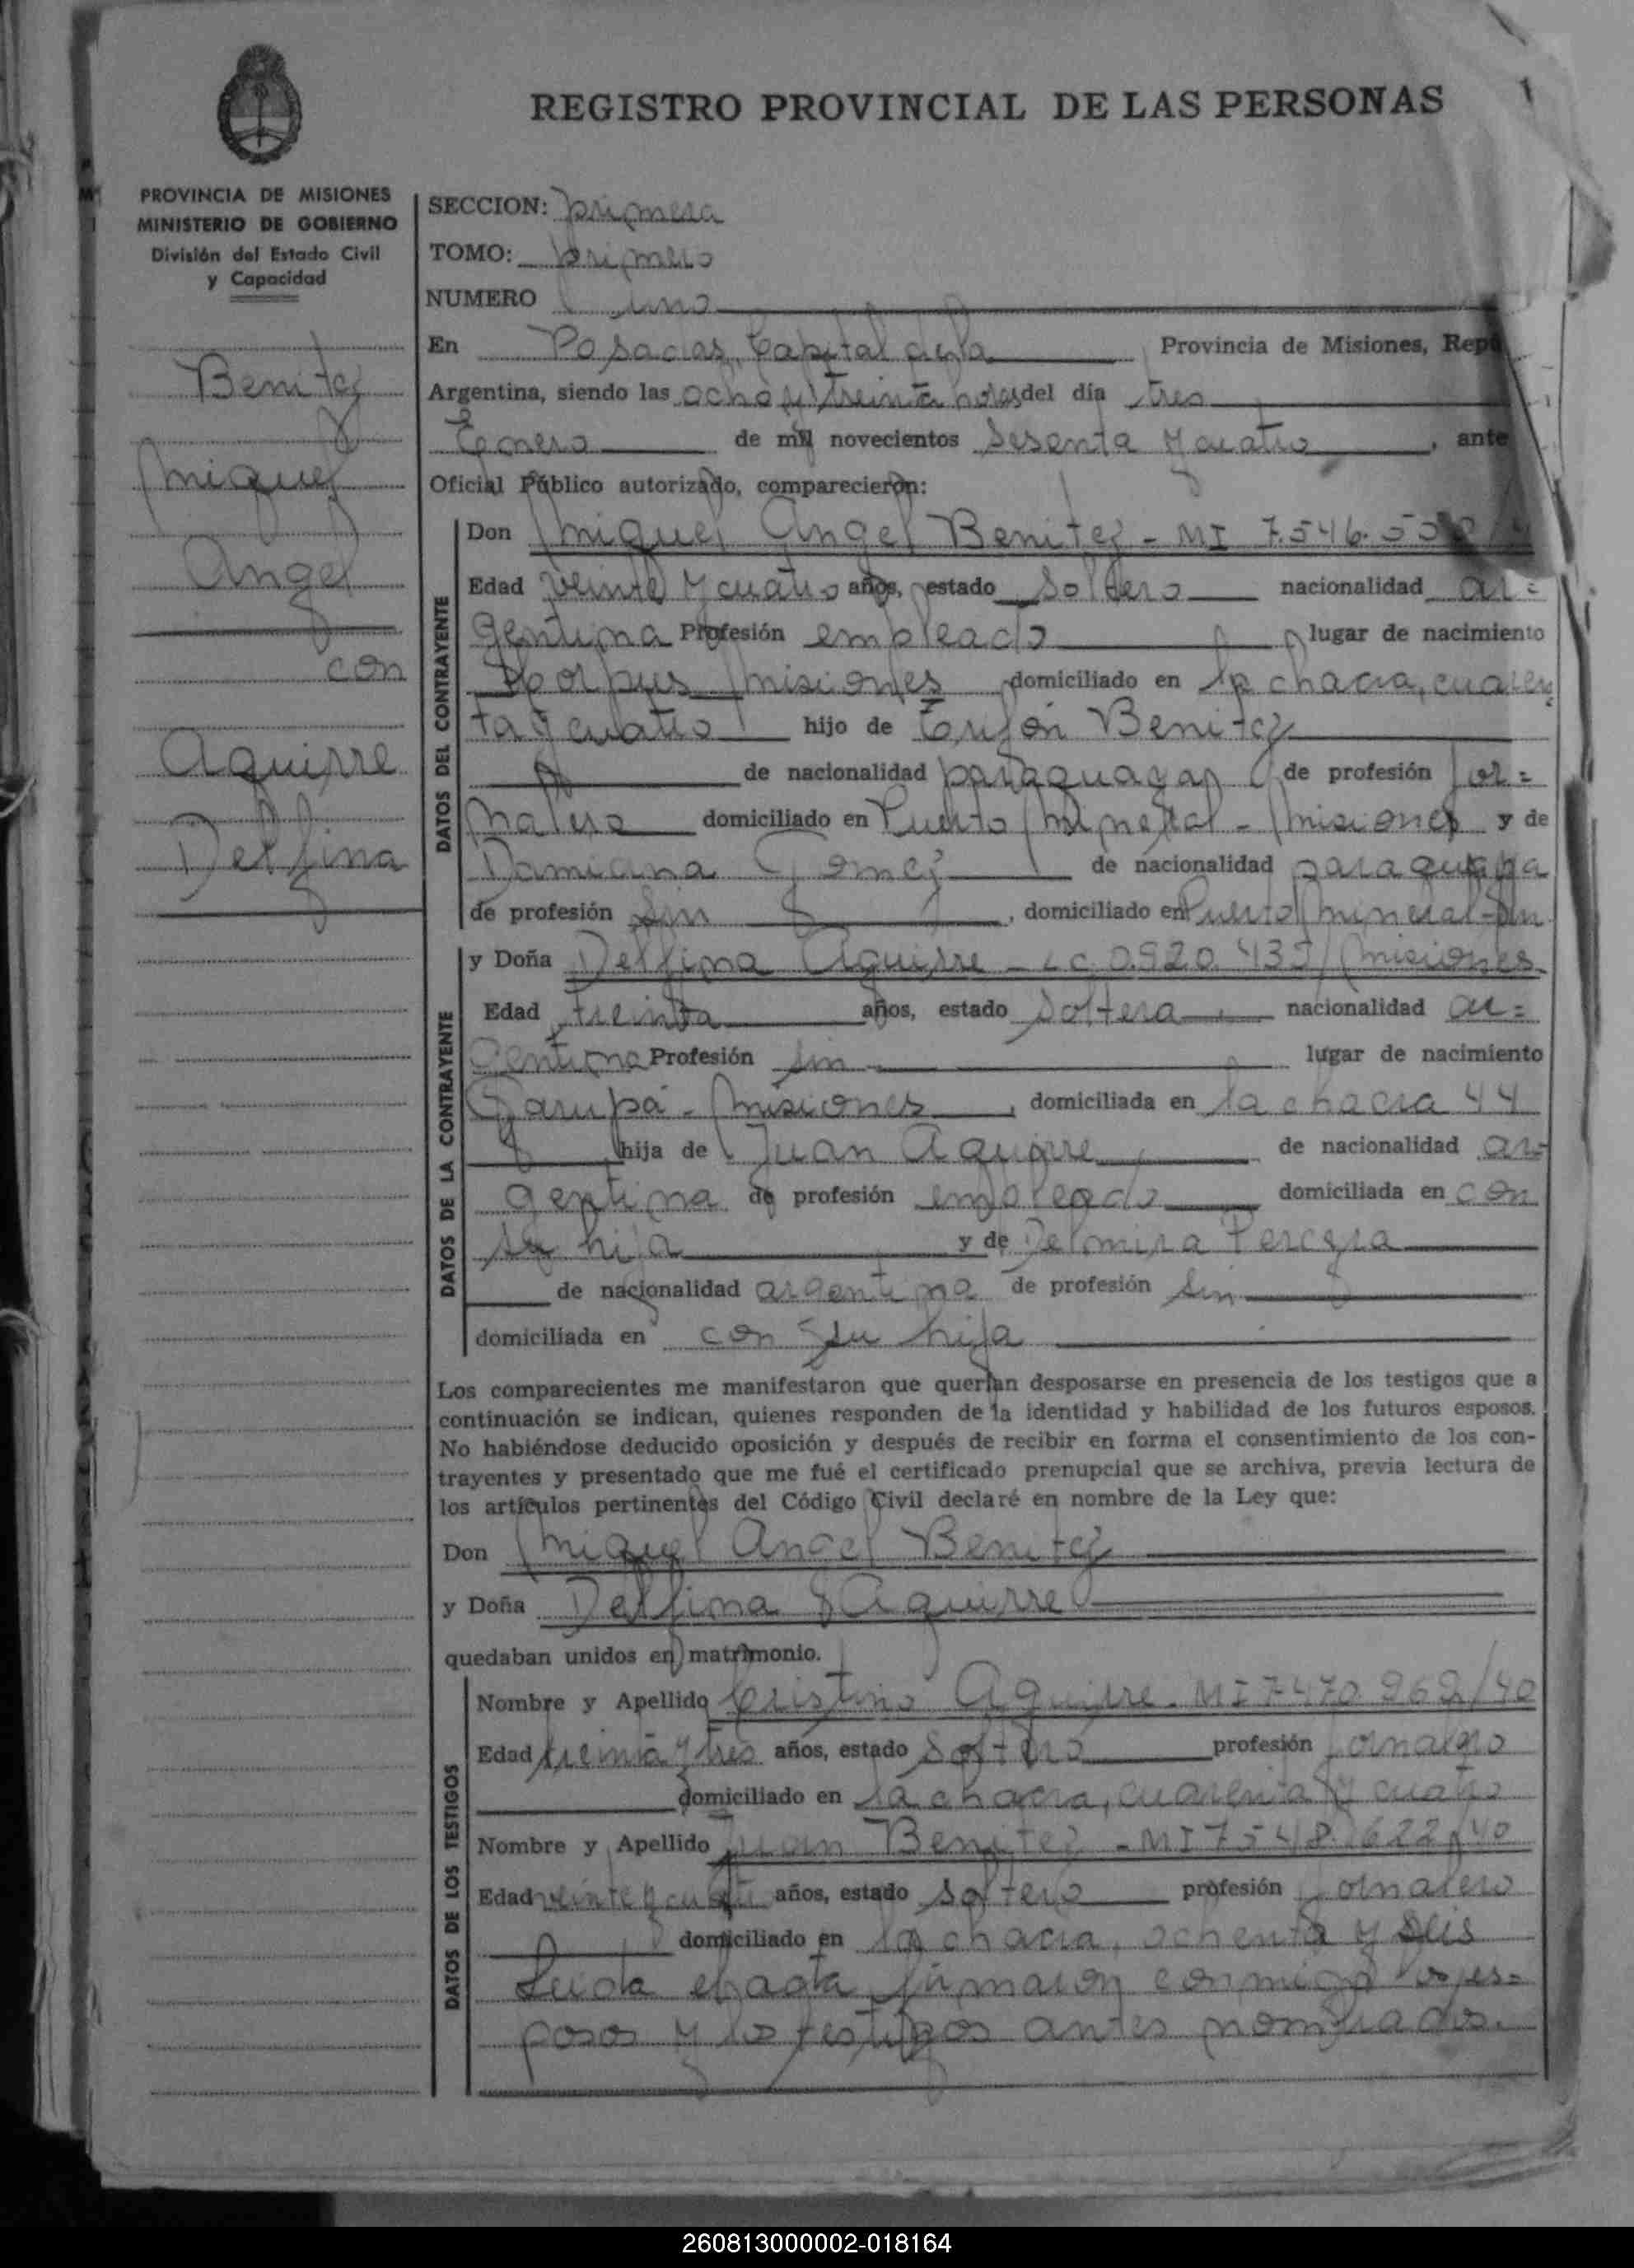 REGISTRO PROVINCIAL DE LAS PERSONAS
PROVINCIA DE MISIONES
MINISTERIO DE GOBIERNO
División del Estado Civil
y Capacidad
Benitez
Miguel
Angel
con
Aguirre
Delfina
SECCION: primera
TOMO: primero
NUMERO uno
En Posadas, Capital de la Provincia de Misiones, Repú
Argentina, siendo las ocho y treinta horas del día tres
Enero de mil novecientos sesenta y cuatro, ante
Oficial Público autorizado, comparecieron:
DATOS DEL CONTRAYENTE
Don Miguel Angel Benitez - MI 7.546.
Edad veinte y cuatro años, estado soltero nacionalidad ar=
gentina Profesión empleado lugar de nacimiento
Corpus Misiones domiciliado en la chacra, cuaren
ta y cuatro hijo de Benitez
de nacionalidad paraguaya de profesión jor=
nalero domiciliado en Puerto Mineral - Misiones y de
Damiana Gomez de nacionalidad paraguaya
de profesión sin, domiciliado en Puerto Mineral -
DATOS DE LA CONTRAYENTE
y Doña Delfina Aguirre - LC 0.920.435/Misiones
Edad treinta años, estado soltera nacionalidad ar=
gentina Profesión sin lugar de nacimiento
Garupá - Misiones, domiciliada en la chacra 44
hija de Juan Aguirre de nacionalidad ar=
gentina de profesión empleado domiciliada en con
su hija y de Delmira Pereyra
de nacionalidad argentina de profesión sin
domiciliada en con su hija
Los comparecientes me manifestaron que querían desposarse en presencia de los testigos que a
continuación se indican, quienes responden de la identidad y habilidad de los futuros esposos.
No habiéndose deducido oposición y después de recibir en forma el consentimiento de los con-
trayentes y presentado que me fué el certificado prenupcial que se archiva, previa lectura de
los artículos pertinentes del Código Civil declaré en nombre de la Ley que:
Don Miguel Angel Benitez
y Doña Delfina Aguirre
quedaban unidos en matrimonio.
DATOS DE LOS TESTIGOS
Nombre y Apellido Cristino Aguirre - MI 7470.962/40
Edad treinta y tres años, estado soltero profesión jornalero
domiciliado en la chacra, cuarenta y cuatro
Nombre y Apellido Juan Benitez - MI 7548.622/40
Edad veinte y cuatro años, estado soltero profesión jornalero
domiciliado en la chacra, ochenta y seis
Leida el acta firmaron conmigo los es=
posos y los testigos antes nombrados.
260813000002-018164